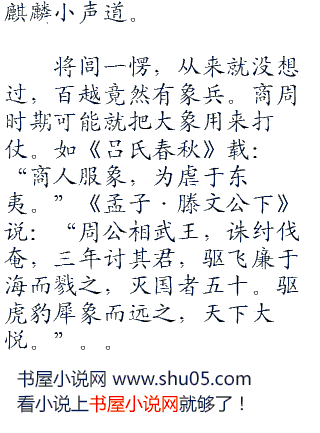 麒麟小声道。
将闾一愣，从来就没想
过，百越竟然有象兵。商周
时期可能就把大象用来打
仗。如《吕氏春秋》载：
“商人服象，为虐于东
夷。”《孟子·滕文公下》
说：“周公相武王，诛纣伐
奄，三年讨其君，驱飞廉于
海而戮之，灭国者五十。驱
虎豹犀象而远之，天下大
悦。”。。
书屋小说网 www.shu05.com
看小说上书屋小说网就够了！